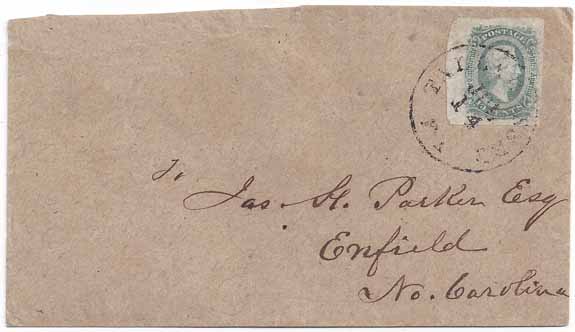 POSTAGE
To
Jas. H. Parker Esq
Enfield
No. Carolina